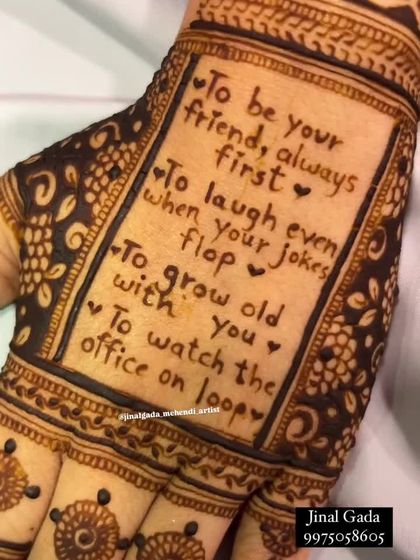 ♥To be your
friend, always
first ♥
♥To laugh even
when your jokes
flop ♥
♥To grow old
with you ♥
♥To watch the
office on loop♥
@jinalgada_mehendi_artist
Jinal Gada
9975058605